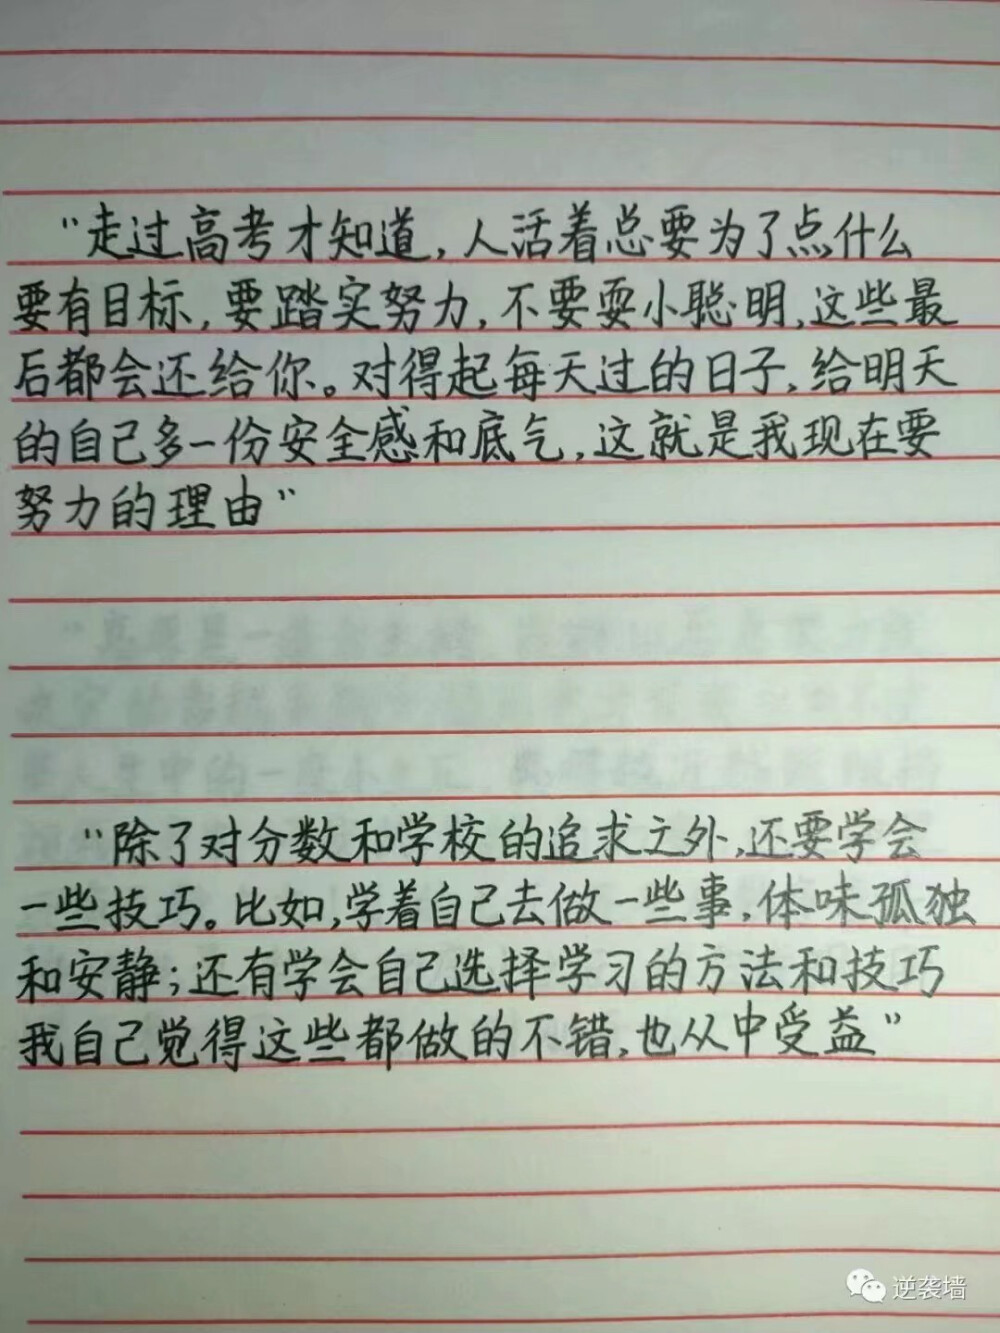 “走过高考才知道，人活着总要为了点什么
要有目标，要踏实努力，不要耍小聪明，这些最
后都会还给你。对得起每天过的日子，给明天
的自己多一份安全感和底气，这就是我现在要
努力的理由”
“除了对分数和学校的追求之外，还要学会
一些技巧。比如，学着自己去做一些事，体味孤独
和安静；还有学会自己选择学习的方法和技巧
我自己觉得这些都做的不错，也从中受益”
逆袭墙